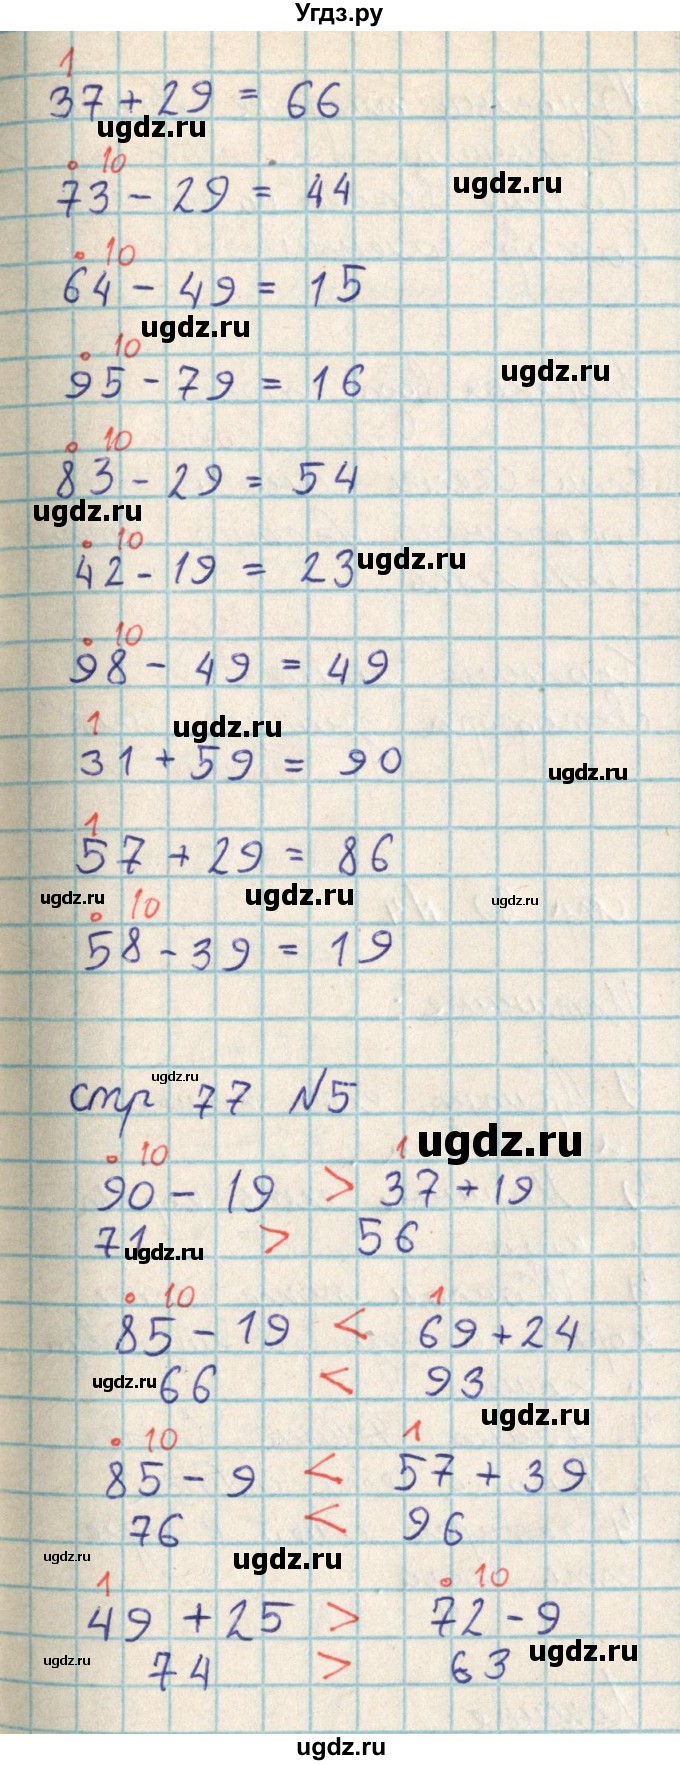 Угдз.ру
1
37 + 29 = 66
ugdz.ru
10
73 - 29 = 44
ugdz.ru
10
64 - 49 = 15
ugdz.ru
10
95 - 79 = 16
ugdz.ru
10
83 - 29 = 54
ugdz.ru
10
42 - 19 = 23
ugdz.ru
10
98 - 49 = 49
1
ugdz.ru
31 + 59 = 90
ugdz.ru
1
57 + 29 = 86
ugdz.ru ugdz.ru ugdz.ru
10
58 - 39 = 19
ugdz.ru
стр 77 №5
10 1 ugdz.ru
90 - 19 > 37 + 19
71 > 56
ugdz.ru
10 1
85 - 19 < 69 + 24
ugdz.ru 66 < 93
ugdz.ru
10 1
85 - 9 < 57 + 39
76 < 96
ugdz.ru ugdz.ru
1 10
49 + 25 > 72 - 9
ugdz.ru
ugdz.ru 74 > 63
ugdz.ru